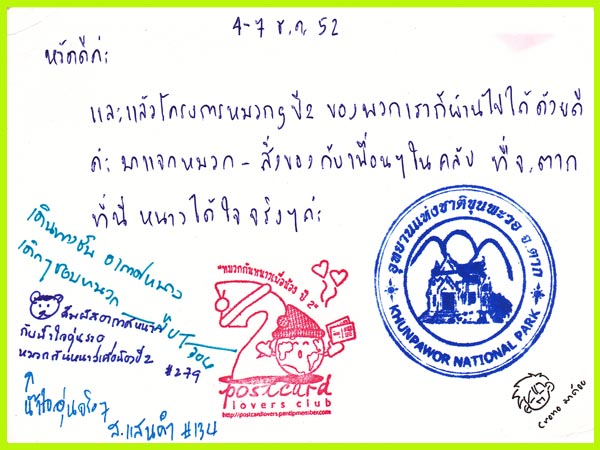 4-7 ธ.ค. 52
หวัดดีค่ะ
และแล้วโครงการหมวกฯปี2 ของพวกเราก็ผ่านไปได้ด้วยดี
ค่ะ มาแจกหมวก - สิ่งของกับเพื่อนๆในคลับ ที่ จ.ตาก
ที่นี่ หนาวได้ใจจริงๆค่ะ
เดินทางชัน อากาศหนาว
เด็กๆชอบหมวก
สัมผัสอากาศหนาว
กับน้ำใจอุ่น
หมวกกันหนาวเพื่อน้องปี 2
#279
น้ำใจอุ่นจริงๆ
ส.แสนดำ #134
"หมวกกันหนาวเพื่อน้อง ปี 2"
2
postcard
lovers club
http://postcardlovers.pantipmember.com
อุทยานแห่งชาติขุนพะวอ จ.ตาก
KHUNPAWOR NATIONAL PARK